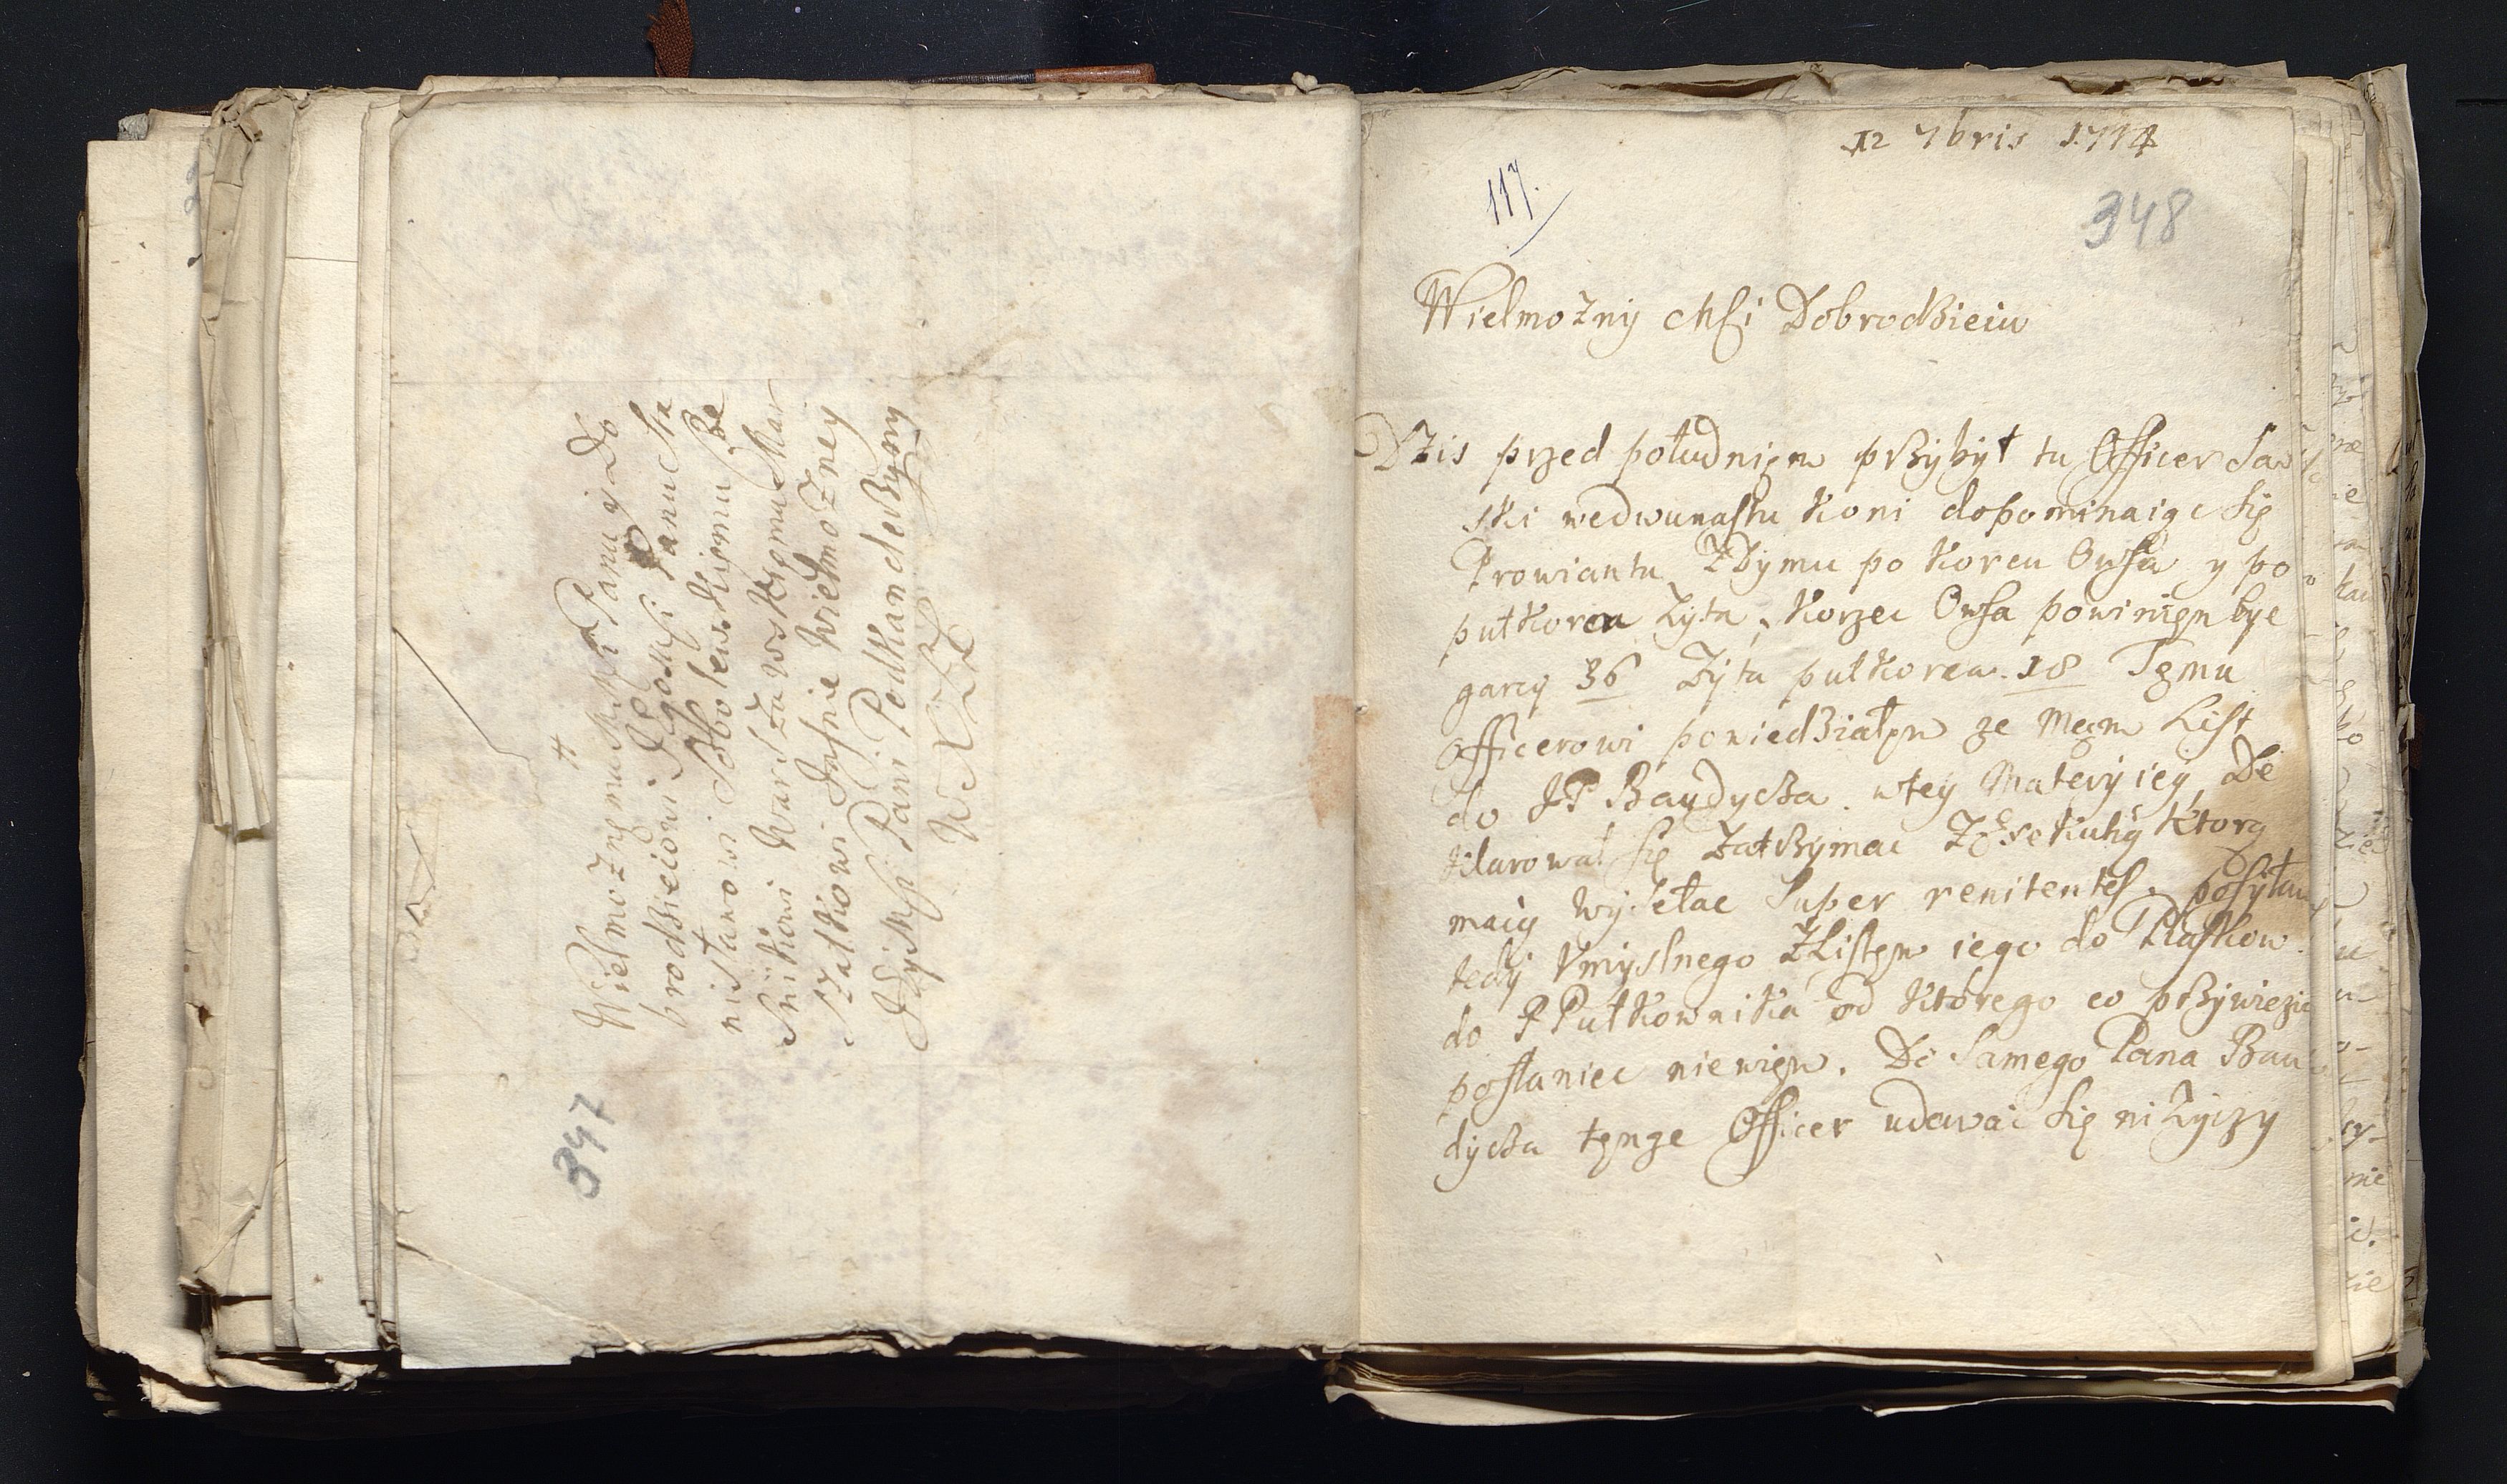 Wielmoznemu MMsci Panu y Do
brodzieiowi JeoMsci Panu Sta
nisławowi Sobolewskiemu Be
Snikowi Warszawskiemu Mar
szałkowi Jasnie Wielmozney
JeyMsci Pani Podkanclerzyny
WXL
347
12 7bris 1714
117.
348
Wielmozny Msci Dobrodzieiu
Dzis przed południem przybył tu Officer Sa
ski wedwunastu koni dopominaiąc się
Prowiantu ZDymu po korcu Owsa y po
pułkorca Zyta, korzec Owsa powinien bye
garcy 36 Zyta pułkorca. 18 Temu
Officerowi powiedziałem ze mam List
do JP Baudycza. wtey Materyiey, De
klarował się Zatrzymac Zexekucyą ktorą
maią wysełac Super renitentes, posyłam
tedy Vmyslnego ZListem iego do Piaskow
do P Pułkownika od ktorego co przywiezie
posłaniec niewiem. Do Samego Pana Bau
dycza tenze Officer udawac się ni Zyczy